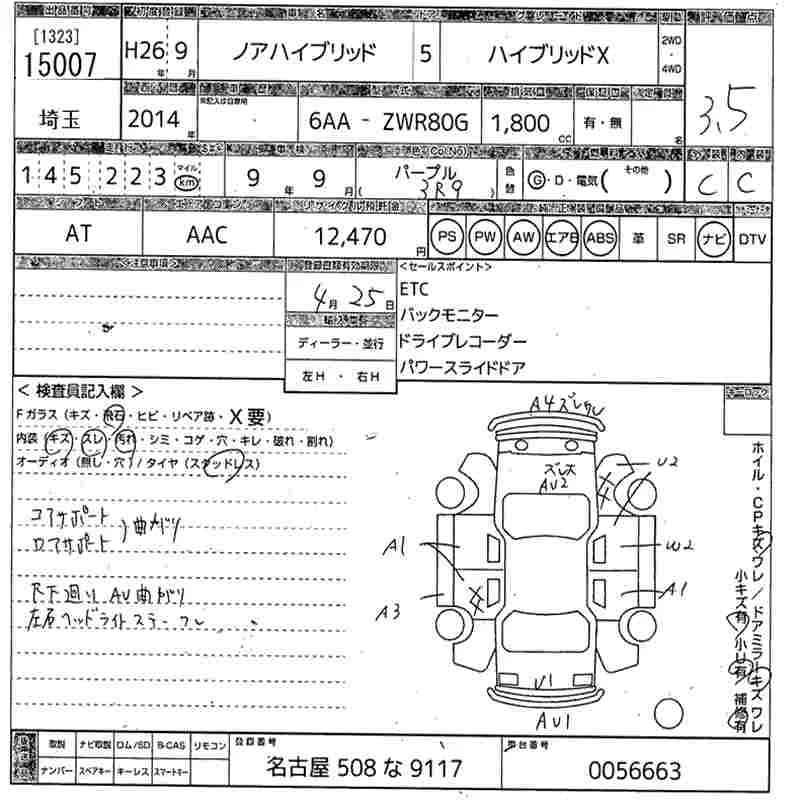 出品番号 初度登録 車種名 ドア グレード 駆動 評価点
[1323]
15007
H26 9 ノアハイブリッド 5 ハイブリッドX
年 月
2WD
・
4WD
3.5
埼玉
2014 年
未記入は自家用
型式 排気量
6AA - ZWR80G 1,800 CC 有・無 名
145,223 マイル km
9 年 9 月
パープル
( 3R9 )
色替
G・D・電気( その他 )
C C
シフト エアコン リサイクル預託金
AT AAC 12,470 円
PS PW AW エアB ABS 革 SR ナビ DTV
注意事項
登録書類有効期限
4月 25日
ディーラー・並行
左H ・ 右H
<セールスポイント>
ETC
バックモニター
ドライブレコーダー
パワースライドドア
< 検査員記入欄 >
Fガラス (キズ・飛石・ヒビ・リペア跡・X要)
内装 (キズ・スレ・汚れ・シミ・コゲ・穴・キレ・破れ・割れ)
オーディオ (無し・穴) / タイヤ (スタッドレス)
コアサポート
ロアサポート
)曲がり
下廻り AU曲がり
左右ヘッドライトステーワレ
A4ズレワレ
ズレ
AU2
U2
A1
W2
A3
A1
U1
AU1
ホイル・CPキズワレ/ドアミラーキズワレ
小キズ有/小U有/補修有
取説 ナビ取説 ロム/SD B-CAS リモコン
ナンバー スペアキー キーレス スマートキー
登録番号
名古屋 508 な 9117
車台番号
0056663